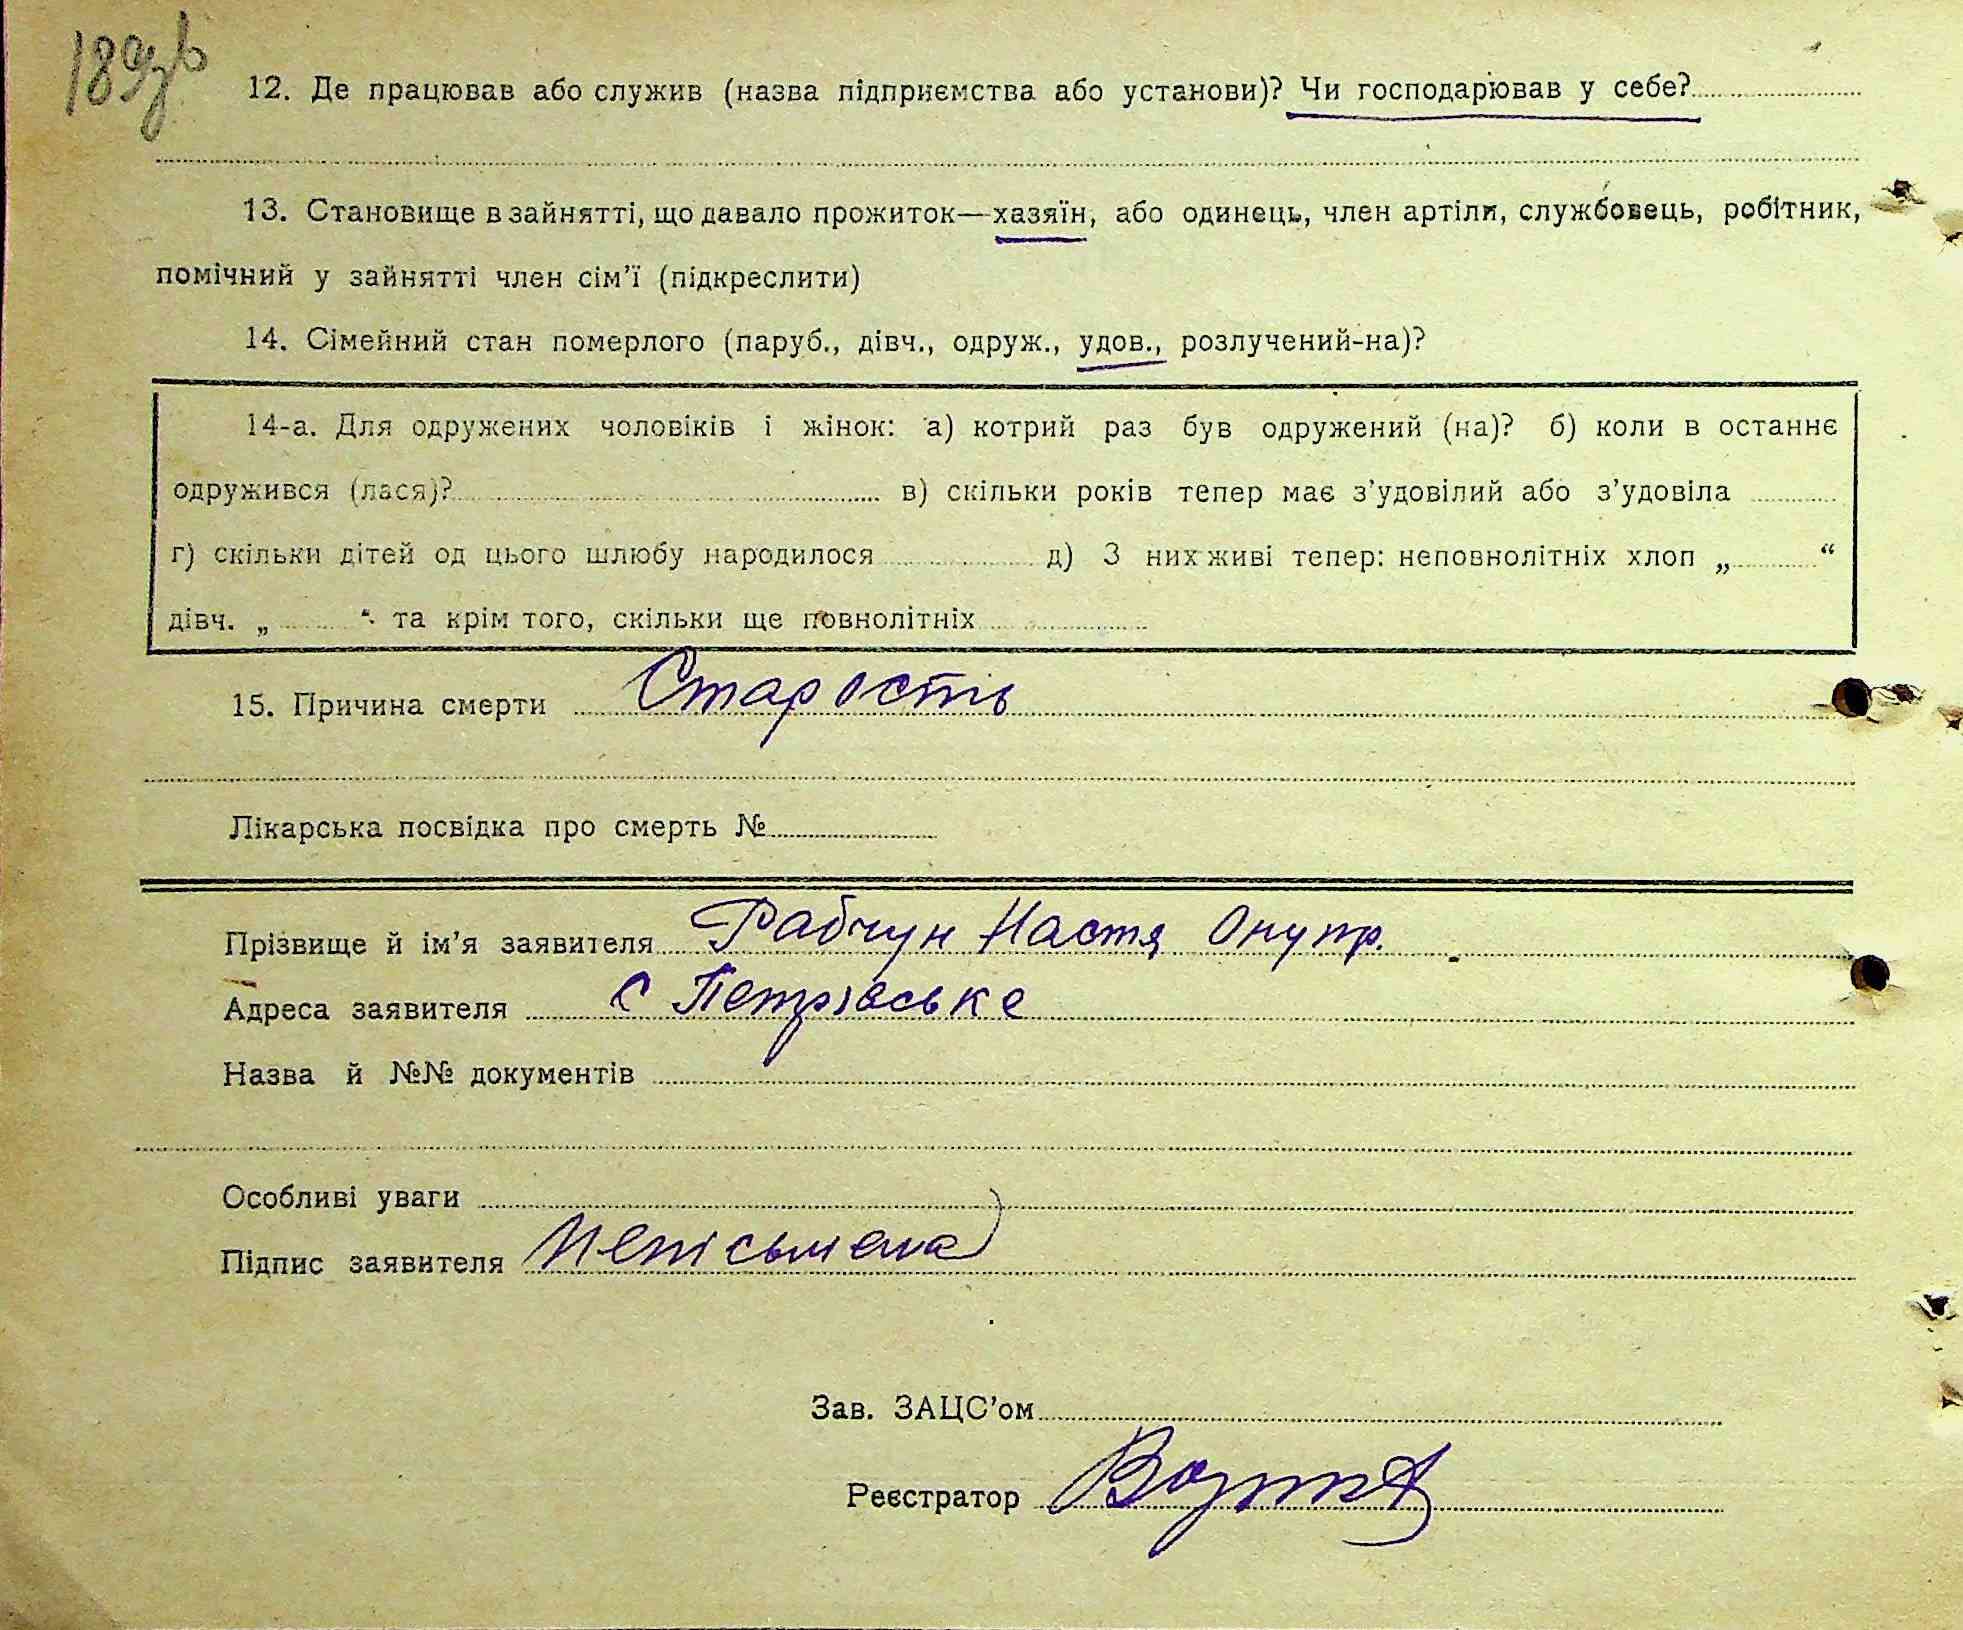 189зв
12. Де працював або служив (назва підприємства або установи)? Чи господарював у себе?
13. Становище в зайнятті, що давало прожиток—хазяїн, або одинець, член артіли, службовець, робітник,
помічний у зайнятті член сім’ї (підкреслити)
14. Сімейний стан померлого (паруб., дівч., одруж., удов., розлучений-на)?
14-а. Для одружених чоловіків і жінок: а) котрий раз був одружений (на)? б) коли в останнє
одружився (лася)? в) скільки років тепер має з’удовілий або з’удовіла
г) скільки дітей од цього шлюбу народилося д) З них живі тепер: неповнолітніх хлоп „ “
дівч. „ “ та крім того, скільки ще повнолітніх
15. Причина смерти Старость
Лікарська посвідка про смерть №
Прізвище й ім’я заявителя Рабчун Настя Онупр.
Адреса заявителя с Петрівське
Назва й №№ документів
Особливі уваги
Підпис заявителя Неписьмена
Зав. ЗАЦС’ом
Реєстратор